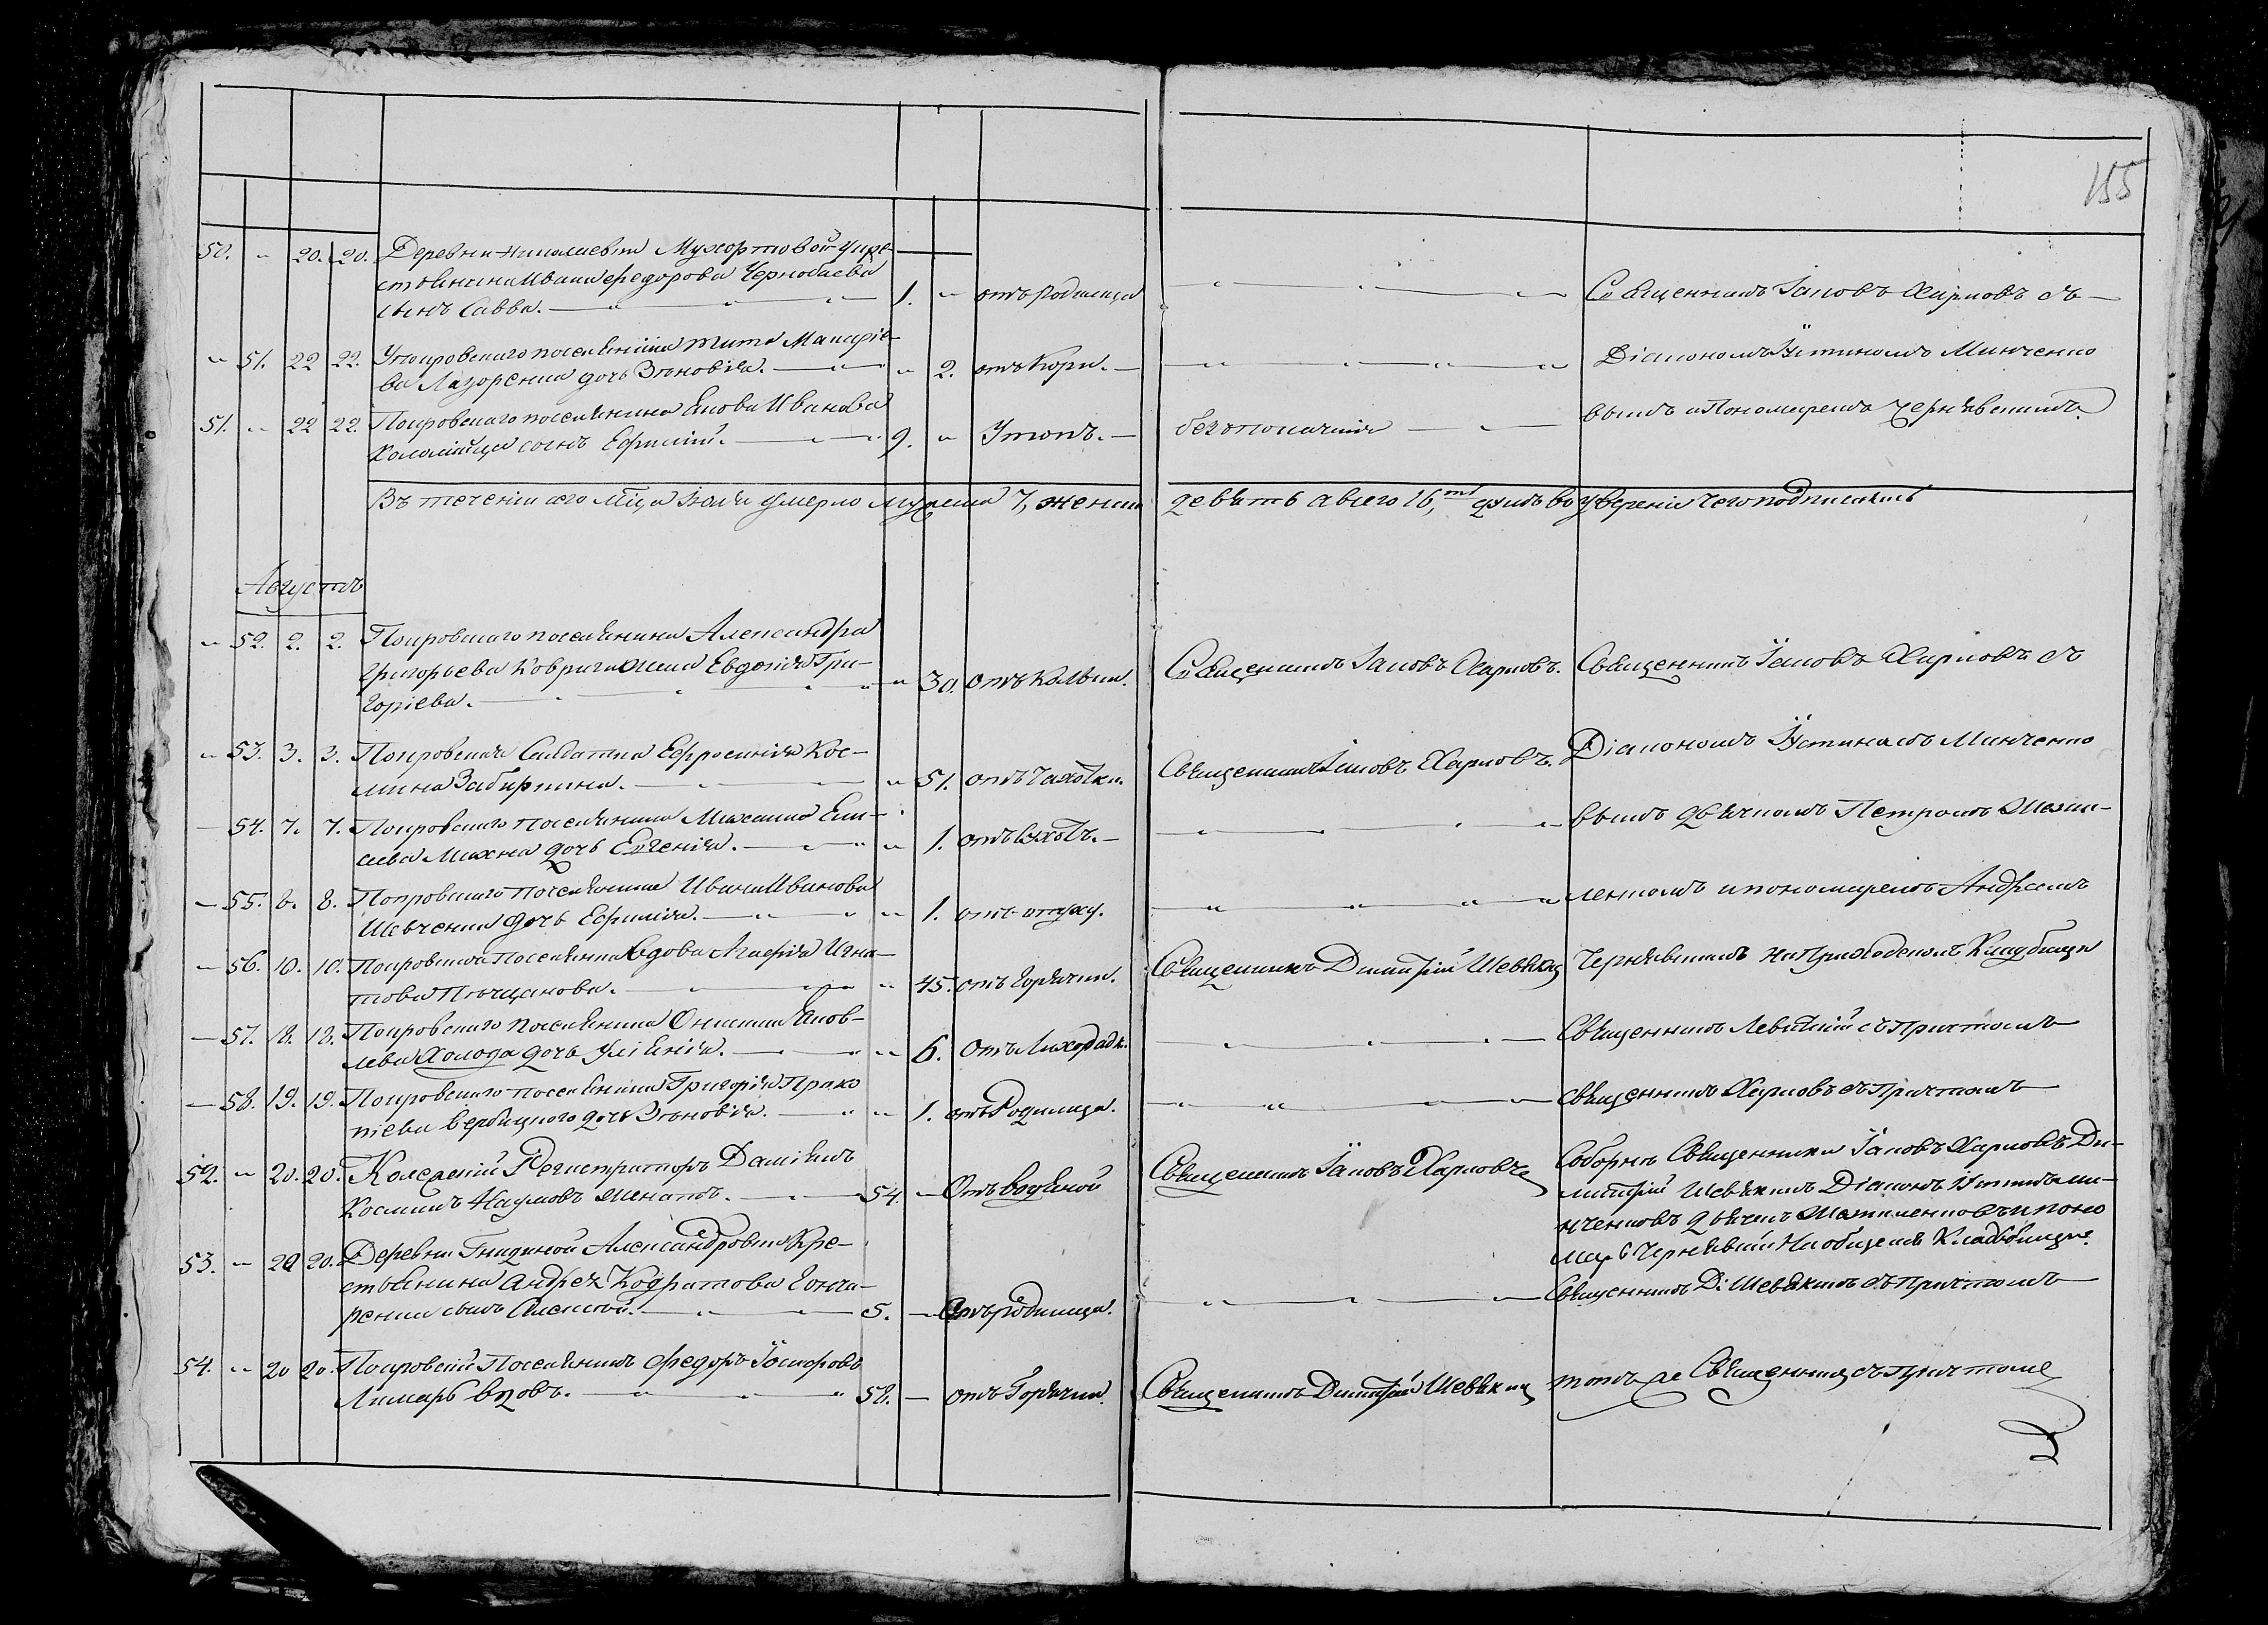 155
50. " 20. 20. Деревни Николаевки Мухортовой Кре-
стьянина Ивана Федорова Чернобаева
сынъ Савва. 1. " отъ Родимца
Священникъ Іаковъ Харповъ съ
" 51. 22 22. Покровскаго поселянина Тита Макаріе-
ва Лазоренка дочь Зѣновія. " 2. отъ Кори.
Діакономъ Іустиномъ Минченко
51. " 22 22. Покровскаго поселянина Якова Иванова
Коломійца сынъ Ефимій. 9. " Утопъ.
без покаянія
вымъ и Пономаремъ Чернявскимъ
Въ теченіи сего Мца Іюля умерло мужеска 7, женска девять а всего 16, душъ во увѣреніи чего подписались
Августъ
" 52. 2. 2. Покровскаго поселянина Александра
Григорьева Ковриги жена Евдокія Гри-
горіева. " 30. отъ Кольки.
Священникъ Іаковъ Харповъ. Священникъ Іаковъ Харповъ съ
" 53. 3. 3. Покровская Салдатка Ефросинія Кос-
мина Забиркина. " 51. отъ Чахотки.
Священникъ Іаковъ Харповъ. Діакономъ Іустиномъ Минченко
54. 7. 7. Покровскаго поселянина Михаила Ели-
сеева Михна дочь Евгенія. " 1. отъ Сухотъ.
вымъ дьячкомъ Петромъ Мазни-
55. 8. 8. Покровскаго поселянина Ивана Иванова
Шевченка дочь Ефимія. " 1. отъ опуху.
ленкомъ и пономаремъ Андреемъ
56. 10. 10. Покровская Поселянка Вдова Агафія Игна-
това Пѣщанова. " 45. отъ Горячки.
Священникъ Димитрій Шевякинъ Чернявскимъ на Приходскомъ Кладбищи
57. 18. 18. Покровскаго поселянина Онисима Яков-
лева Холода дочь Уліянія. " 6. Отъ Лихорадк.
Священникъ Левицкій съ Притчомъ
58. 19. 19. Покровскаго поселянина Григорія Проко
піева Вербицкого дочь Зѣновія. " 1. отъ Родимца.
священникъ Харповъ съ Притчомъ
52. " 20. 20. Колежскій Регистраторъ Даміянъ
Косминъ Наумовъ женатъ. 54. Отъ водяной
Священникъ Іаковъ Харповъ Соборнѣ Священники Іаковъ Харповъ Ди-
митрій Шевякинъ Діаконъ Іустинъ Ми-
нченковъ дьячокъ и поно
марь Чернявскій На общемъ Кладбищи
53. " 20 20. Деревни Гнидиной Александровки Кре-
стьянина Андрея Кодратова Гонча-
ренка сынъ Алексѣй. 5. Отъ родимца.
Священникъ Д. Шевякинъ съ Притчомъ
54. " 20 20. Покровскій Поселянинъ Федоръ Іосифовъ
Лимарь вдовъ. 58. отъ Горячки.
Священникъ Димитрій Шевякинъ тотъ же Священникъ съ притчомъ